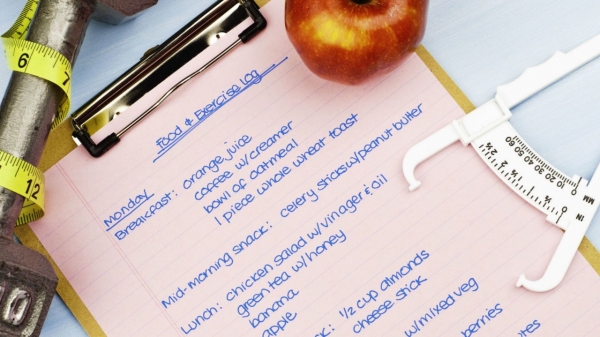 Food & Exercise Log
Monday
Breakfast: orange juice
coffee w/creamer
bowl of oatmeal
1 piece whole wheat toast
Mid-morning snack: celery sticks w/peanut butter
Lunch: chicken salad w/vinager & oil
green tea w/honey
banana
apple
k: 1/2 cup almonds
cheese stick
w/mixed veg
berries
6
7
12
60 50 40 30 20 10 0
MM
2 1/2
1 1/2
1/2
IN